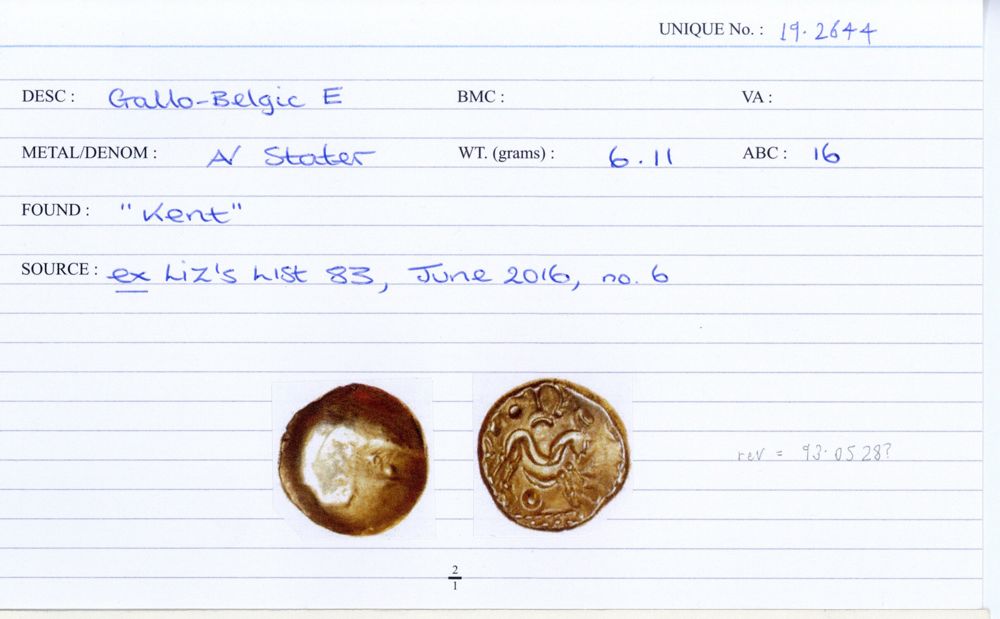 UNIQUE No. : 19.2644
DESC : Gallo-Belgic E BMC : VA :
METAL/DENOM : AV Stater WT. (grams) : 6.11 ABC : 16
FOUND : "Kent"
SOURCE : ex Liz's List 83, June 2016, no. 6
rev = 93.0528?
2
1